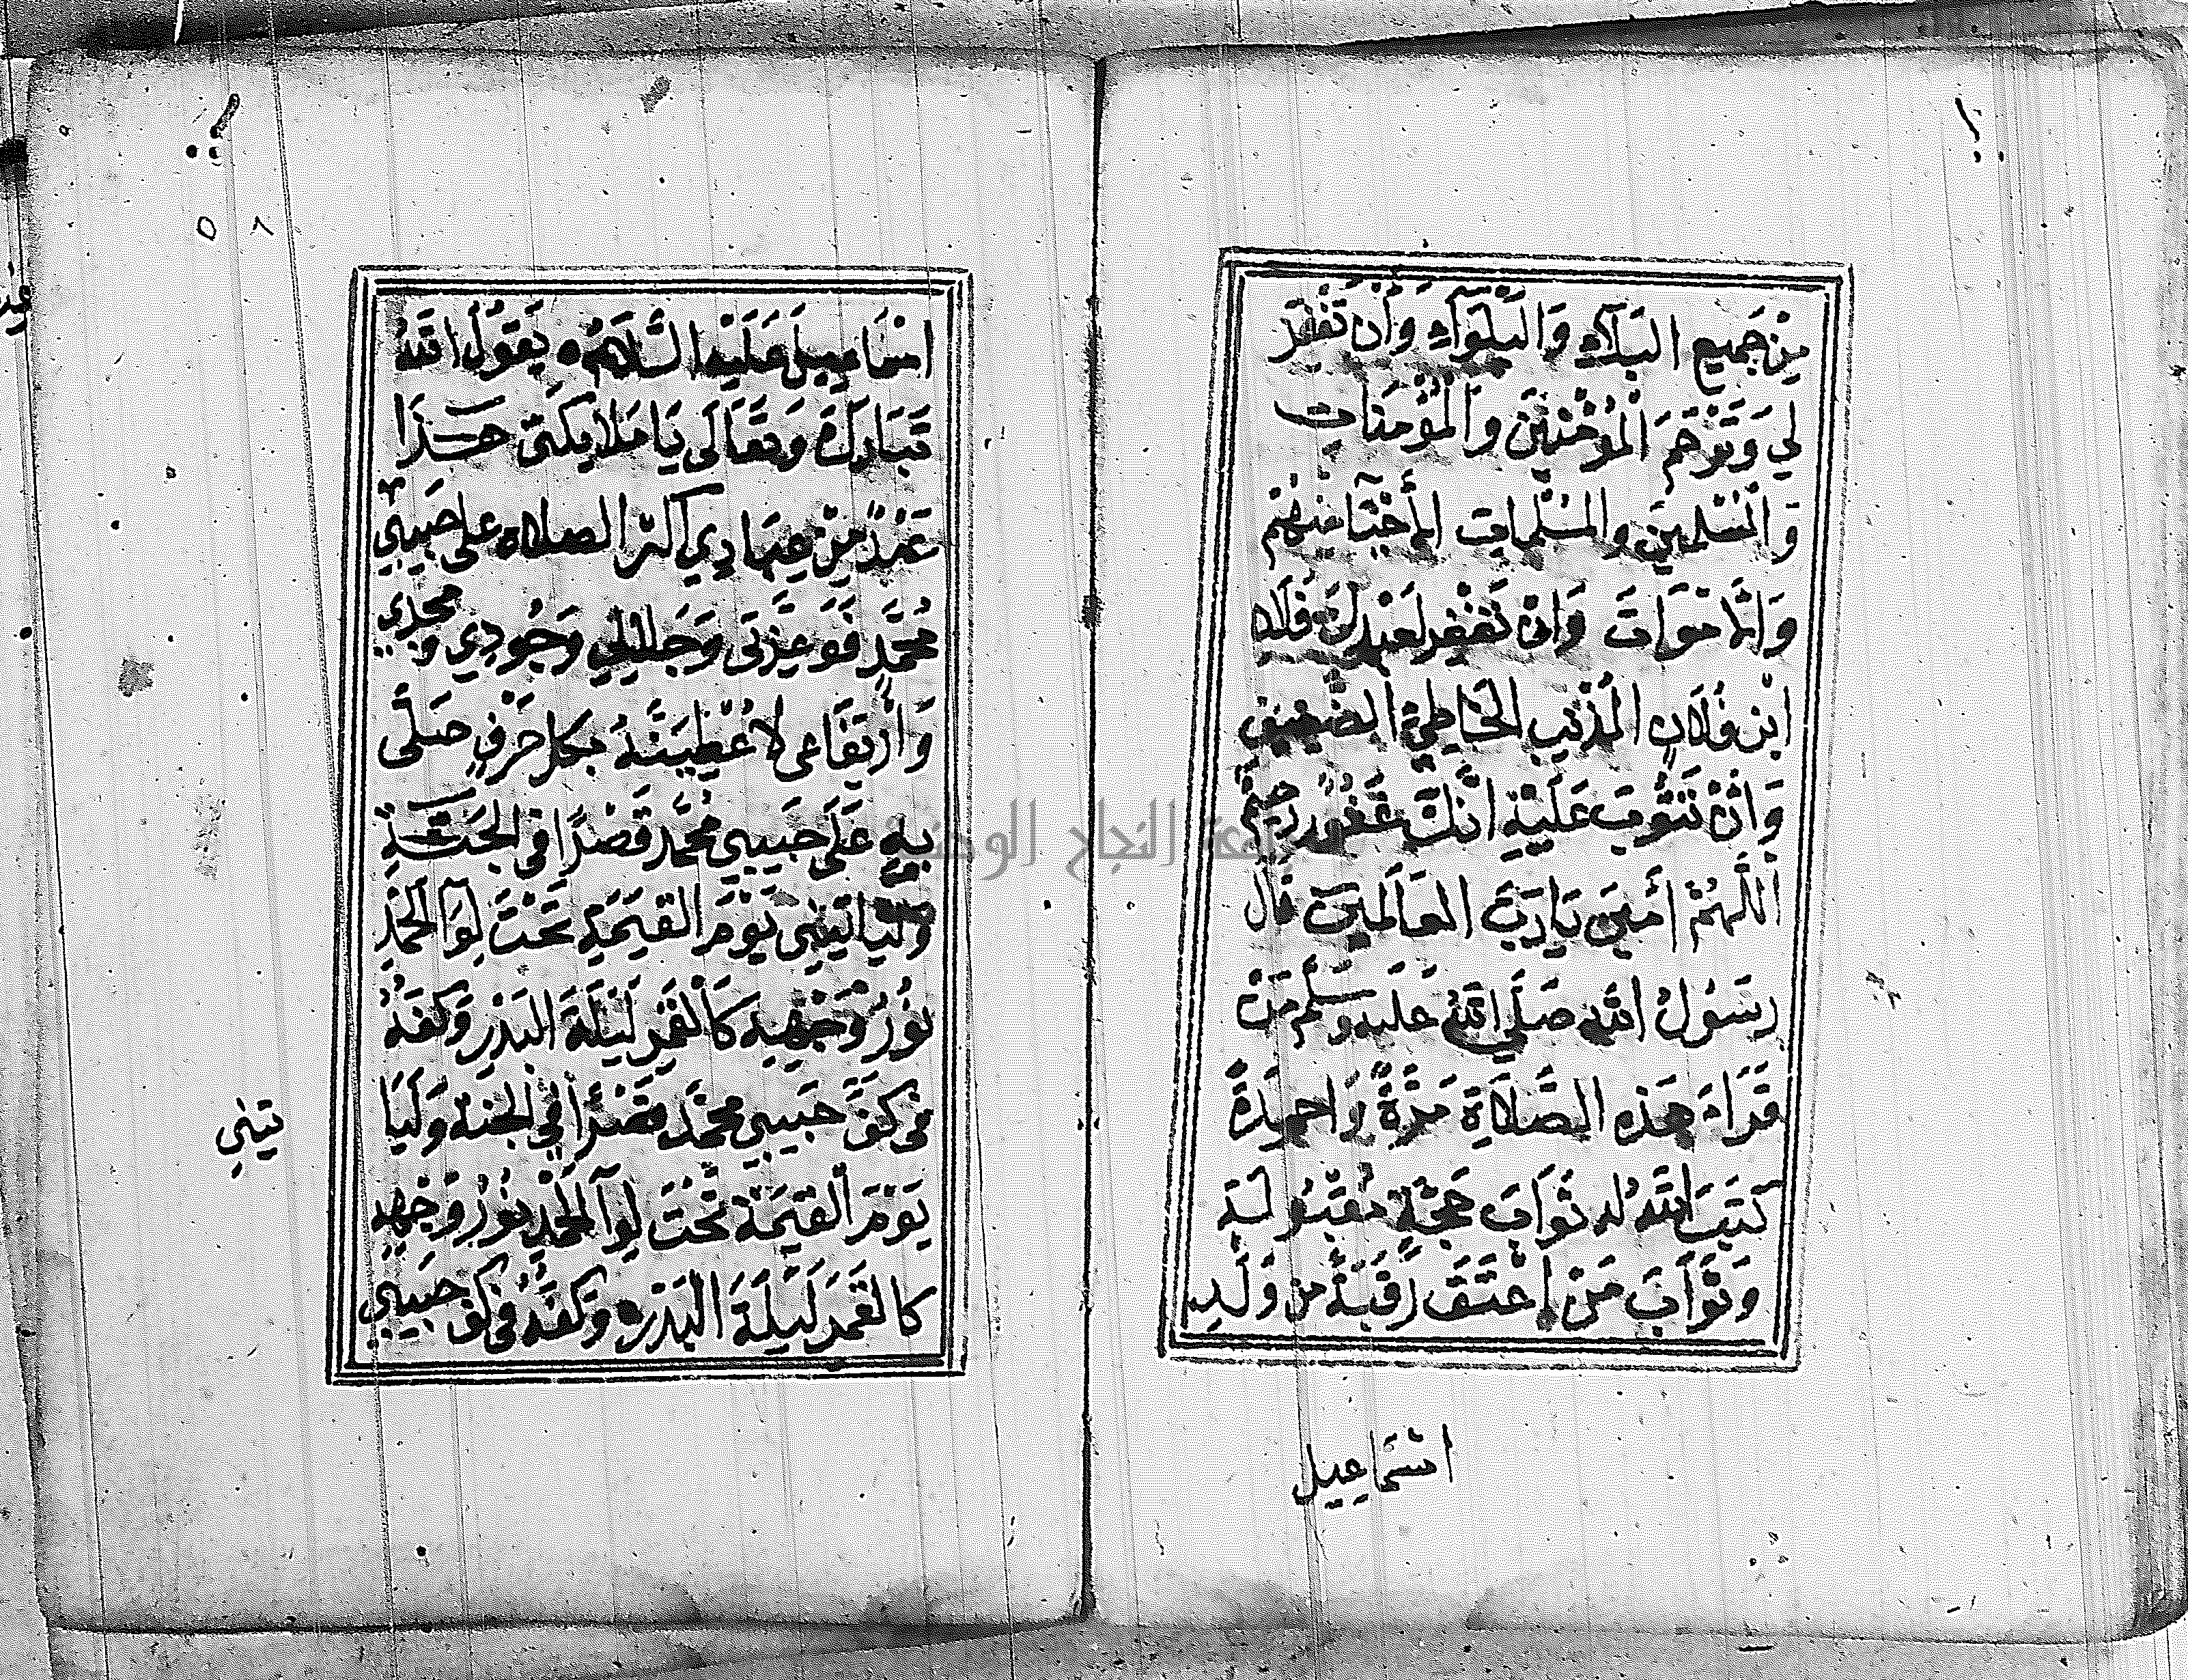 مِنْ جَمِيعِ البَلَآءِ وَالبَلْوَآءِ وَأَنْ تَغْفِرَ
لِي وَتَرْحَمَ الْمُؤْمِنِيْنَ وَالْمُؤْمِنَاتِ
وَالْمُسْلِمِيْنَ وَالْمُسْلِمَاتِ الأَحْيَآءِ مِنْهُمْ
وَالْأَمْوَاتَ وَانْ تَغْفِرِ لِعَبْدِكَ فُلَان
ابْنِ فُلَانٍ الْمُذْنِبِ الخَاطِئِ الضَعِيفِ
وَانْ تَتُوبَ عَلَيْهِ اِنَّكَ غَفُورٌ رَحِيمٌ
اَللَّهُمَّ أَمِينَ يَارَبَّ العَالَمِينَ قال
رَسَوُلُ اللهِ صَلَّي اللهُ عَلَيه وَسَلَّمَ مَنْ
قَرَاءَ هَذِهِ الصَّلَاةِ مَرَّةً وَاحِدَةً
كَتَبَ اللهُ لَه ثَوَابَ حَجَّةٍ مَقْبُولَةٍ
وَثَوَابَ مَنْ اعْتَقَ رَقَبَةً مِن وَلَدِ
اسْمَاعِيل
اسْمَاعِيلَ عَلَيْهِ السَّلَامُ ه يَقُولُ اللهُ
تَبَارَكَ وَتَعَالَى يَا مَلَايِكَتِي هَذَا
عَبْدٌ مِنْ عِبَادِي اكْثَرَ الصلاه على حَبِيبِي
مُحَمَّدٍ فَوَعِزَّتِي وَجَلَالِي وَجُودِي وَمَجْدِي
وَارْتِفَاعِي لَاُعْطِيَنَّهُ بكل حَرْفٍ صَلَّى
بِهِ عَلَى حَبِيبِي مُحَمَّد قَصْرًا فِي الجَنَّةِ
وَلَيَاتِيَنِي يَوْمَ القِيَمَةِ تَحْتَ لِوَآ الْحَمْدِ
نُوُرُ وَجْهِهِ كَالْقَمَرِ لَيْلَةَ الْبَدْرِ وَكَفُّهُ
في كَفَّ حَبِيبِي مُحَمَّد قَصْرًا فِي الْجَنَة وَلَيَا
تِيَنِي
يَوْمَ الْقِيَمَة تَحْتَ لِوَآ الْحَمْدِ نُوُرُ وَجْهِهِ
كالقَمَرِ لَيْلَةَ الْبَدْرِ ه وَكَفُّهُ في كف حَبِيبِي
٥٨
جامعة النجاح الوطنية